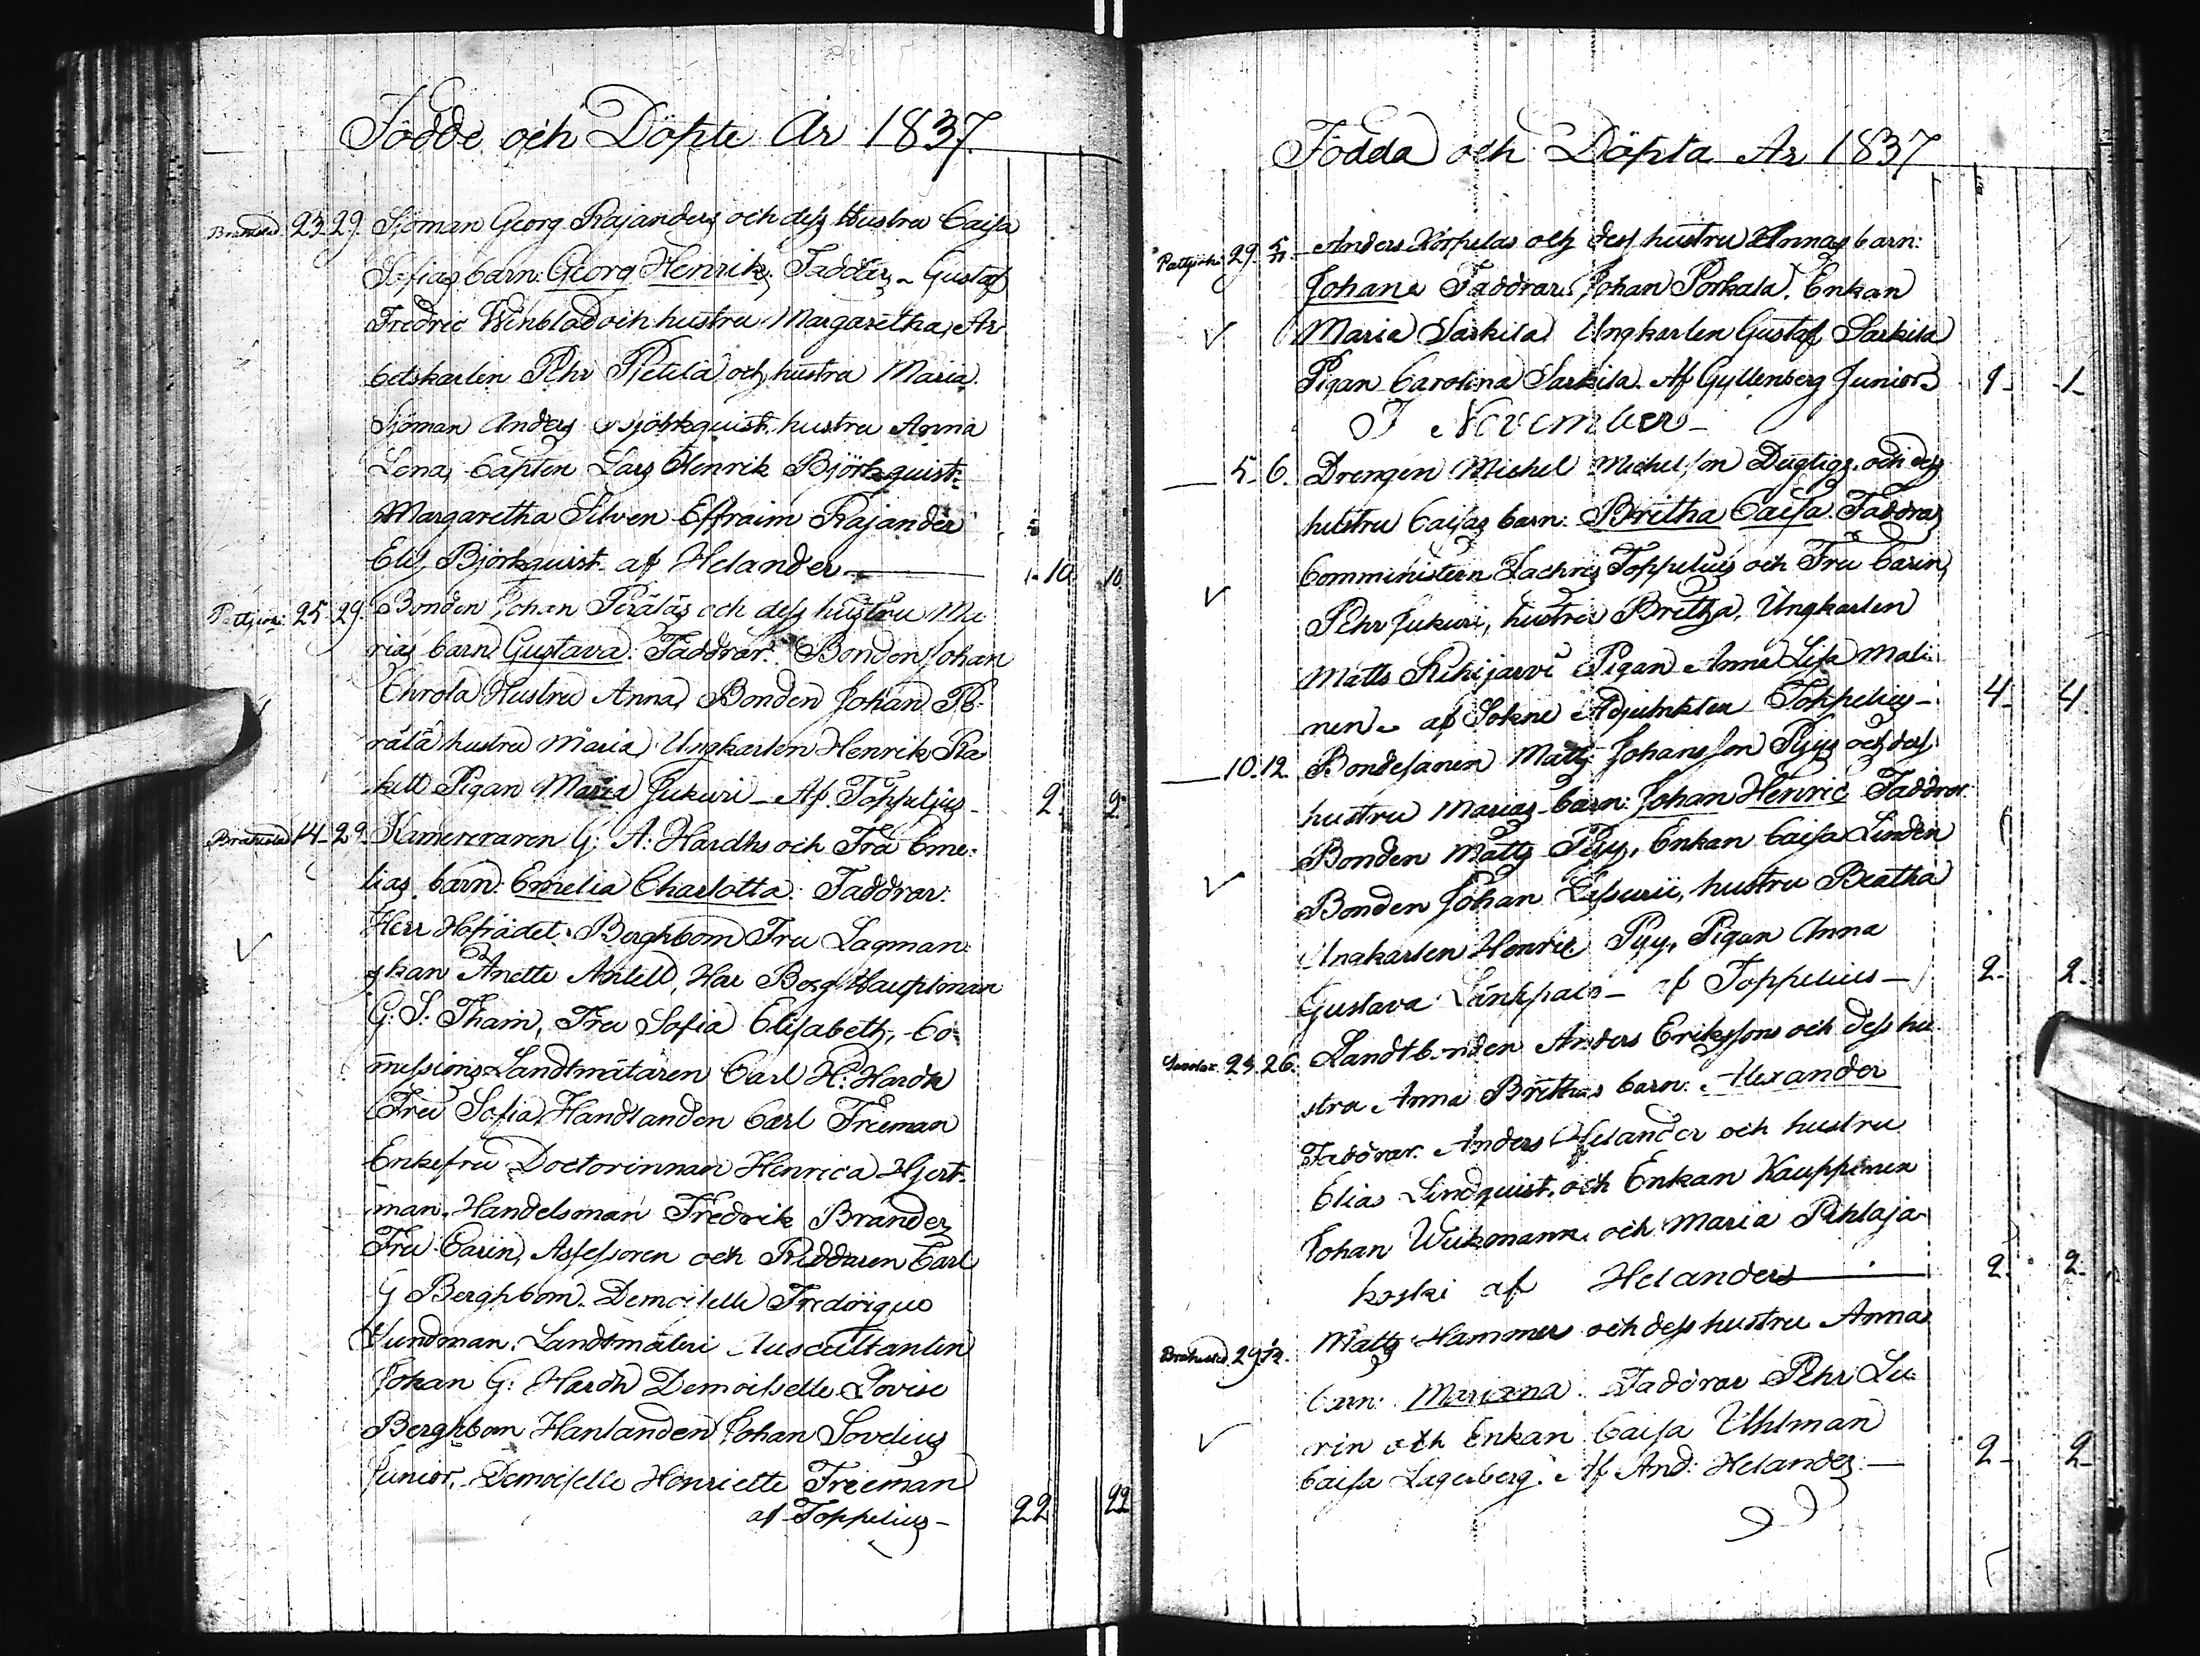 Födde och Döpte År 1837.
Brahestad 23. 29. Sjöman Georg Rajanders och dess Hustru Caisa
Sofias barn: Georg Henrik; Faddrar Gustaf
Fredric Winblad och hustru Margaretha, Ar
betskarlen Pehr Pietilä och hustra Maria.
Sjöman Anders Björkquist. hustru Anna
Lena, Capten Lars Henrik Björkquist.
Margaretha Silven Effraim Rajander
Elis Björkquist af Helander 10 10
Pattijoki 25. 29. Bonden Johan Peräläs och dess hustru Ma
rias barn Gustava. Faddrar: Bonden Johan
Ehrola Hustru Anna, Bonden Johan Pe
rälä hustru Maria, Ungkarlen Henrik
Pigan Maria Jukuri Af Toppelius 2. 2.
Brahestad 14. 29. Kamereraren G: A: Hardhs och Fru Eme:
lias barn: Emelia Charlotta: Faddrar:
Herr Hofrådet Berghbom Fru Lagman
skan Anette Antell, Har Berg Hauptman
G: S: Tham, Fru Sofia Elisabeth, Co
missions Landtmätaren Carl H: Hardh
Fru Sofia, Handlanden Carl Freeman
Enkefru Doctorinnan Henrica Hjert
man, Handelsman Fredrik Brander
Fru Carin, Assessoren och Riddaren Carl
G Berghbom. Demoiselle Fredrique
Sundman. Landtmäteri Auscultanten
Johan G: Hardh Demoiselle Lovise
Berghbom Hanlanden Johan Sovelius
Junior, Demoiselle Henriette Freeman
af Toppelius 22 22
Födda och Döpta År 1837
Pattijoki 29. Anders Körpelas och dess hustru Annas barn:
Johan Faddrar Johan Porkala. Enkan
Maria Sarkila Ungkarlen Gustaf Sarkila
Pigan Carolina Sarkila. Af Gyllenberg Junior 1 1
I November
5. 6. Drengen Michel Michelson Dugtigs och dess
hustru Caisas barn: Britha Caisa. Faddrar
Comministern Zachris Toppelius och Fru Carin,
Pehr Jukuri, hustru Bretha, Ungkarlen
Matts Pigan Anna Lisa Mali
nen af Sokne Adjunkten Toppelius 4 4
10. 12. Bondesonen Matts Johansson Pyys och dess
hustru Marias barn: Johan Henric Faddrar:
Bonden Matts Pyy, Enkan Caisa Linden
Bonden Johan hustru Breatha
Ungkarlen Henric Pyy, Pigan Anna
Gustava af Toppelius 2. 2.
23. 26. Landtbonden Anders Erikssons och dess hu
stru Anna Brithas barn: Alexander
Faddrar. Anders Helander och hustru
Elias Lindquist och Enkan Kauppinen
Johan Wickmann och Maria Pihlaja
koski af Helander 2. 2.
Brahestad 29. Matts Hammers och dess hustru Annas
barn: Mariana Faddrar Pehr Lu
rin och Enkan Caisa Uhlman
Caisa Lagerberg. Af And: Helander 2 2